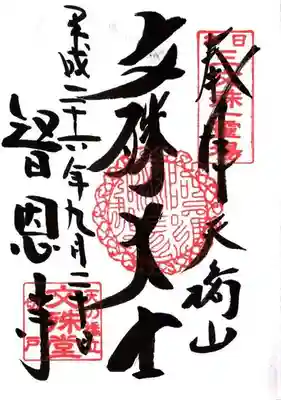 奉拝 天橋山
文殊大士
平成二十六年九月二十日
智恩寺
日本
三文殊霊場
天の橋立
文殊堂